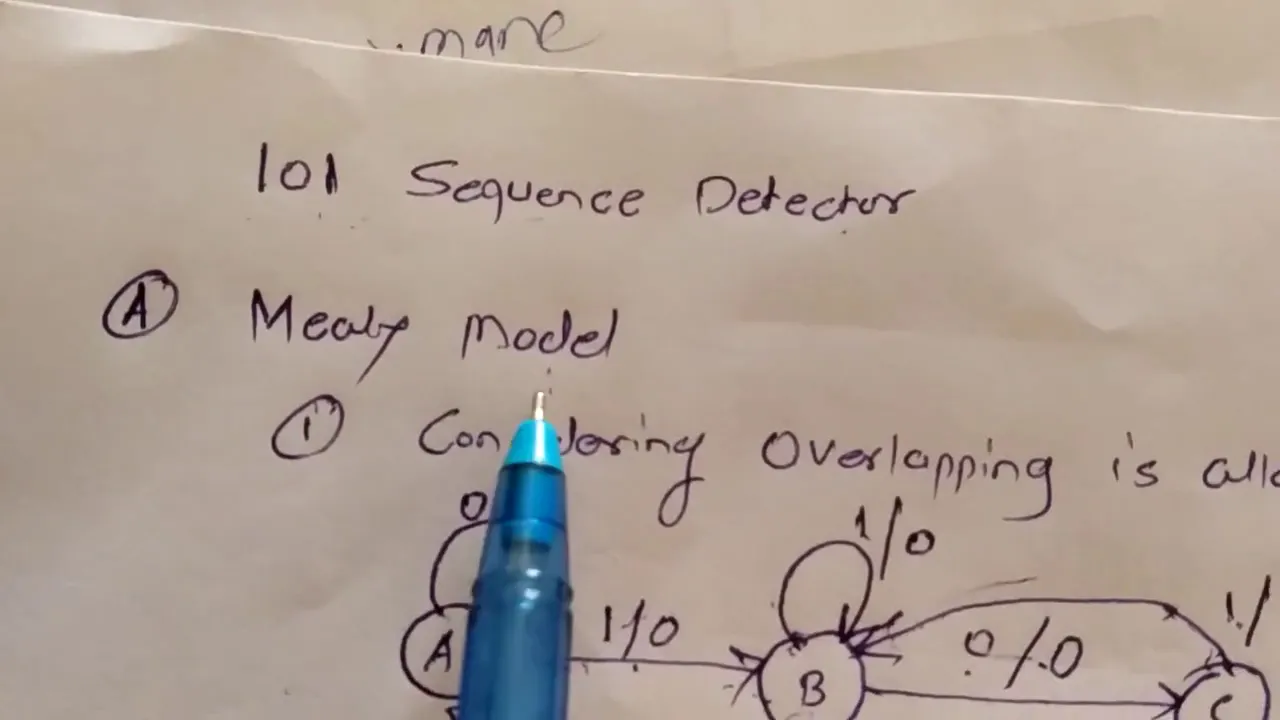 mane
101 Sequence Detector
A Mealy Model
1 Considering Overlapping is
1/0
0
1/0
0/0
1/
A
B
C